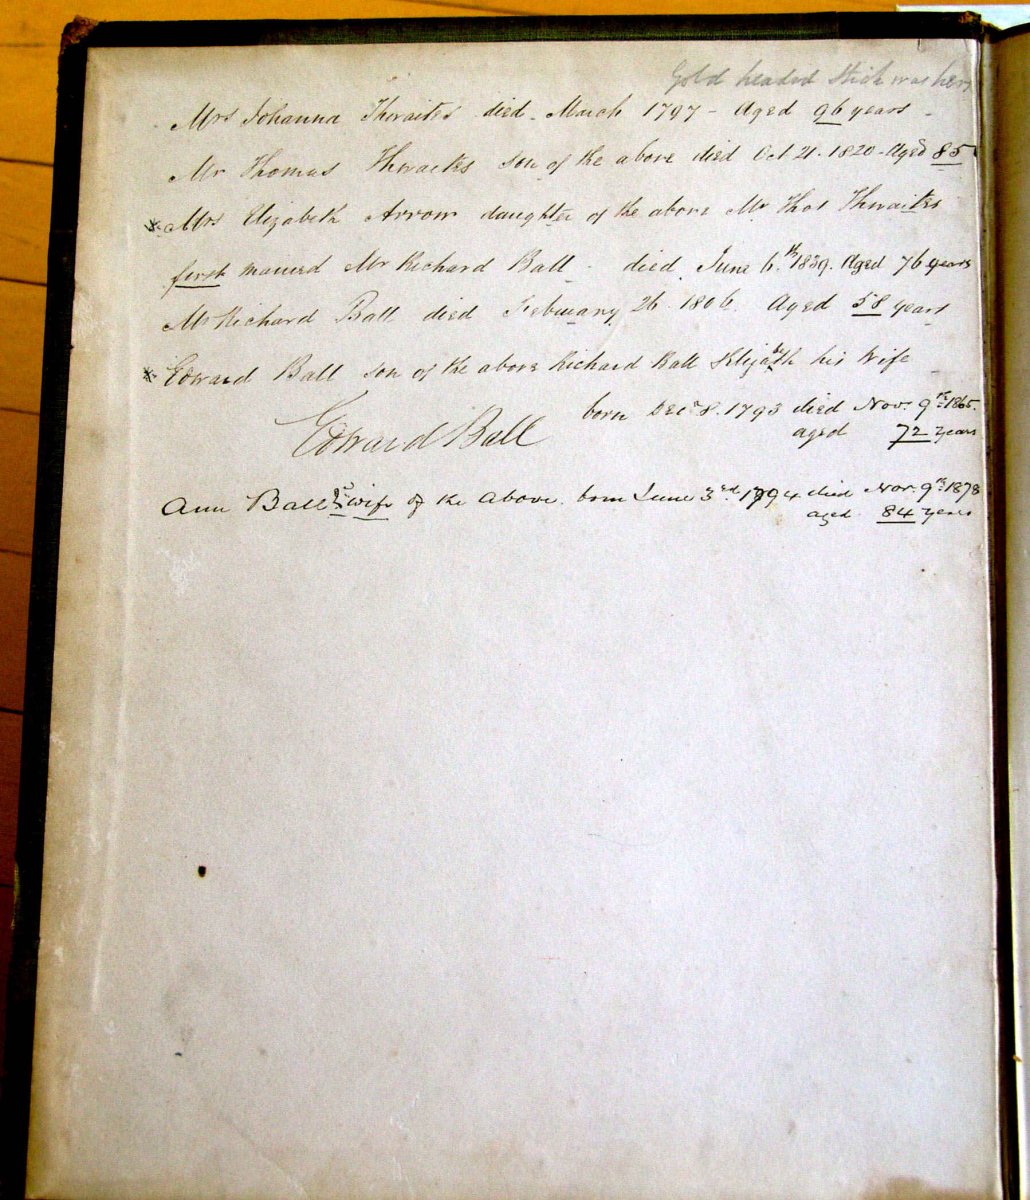 Gold headed Stick was hers
Mrs Johanna Thwaites died March 1797 - Aged 96 years -
Mr Thomas Thwaites son of the above died Oct 21. 1820 - Aged 85
* Mrs Elizabeth Arrow daughter of the above Mr Thos Thwaites
first married Mr Richard Ball - died June 6.th 1839. Aged 76 years
Mr Richard Ball died February 26. 1806. Aged 58 years
* Edward Ball son of the above Richard Ball & Elizabeth his Wife -
born Decr 8. 1793 died Nov. 9th 1865.
Edward Ball aged 72 years
Ann Ball wife of the above. born June 3rd 1794 died Nov. 9th 1878
aged 84 years